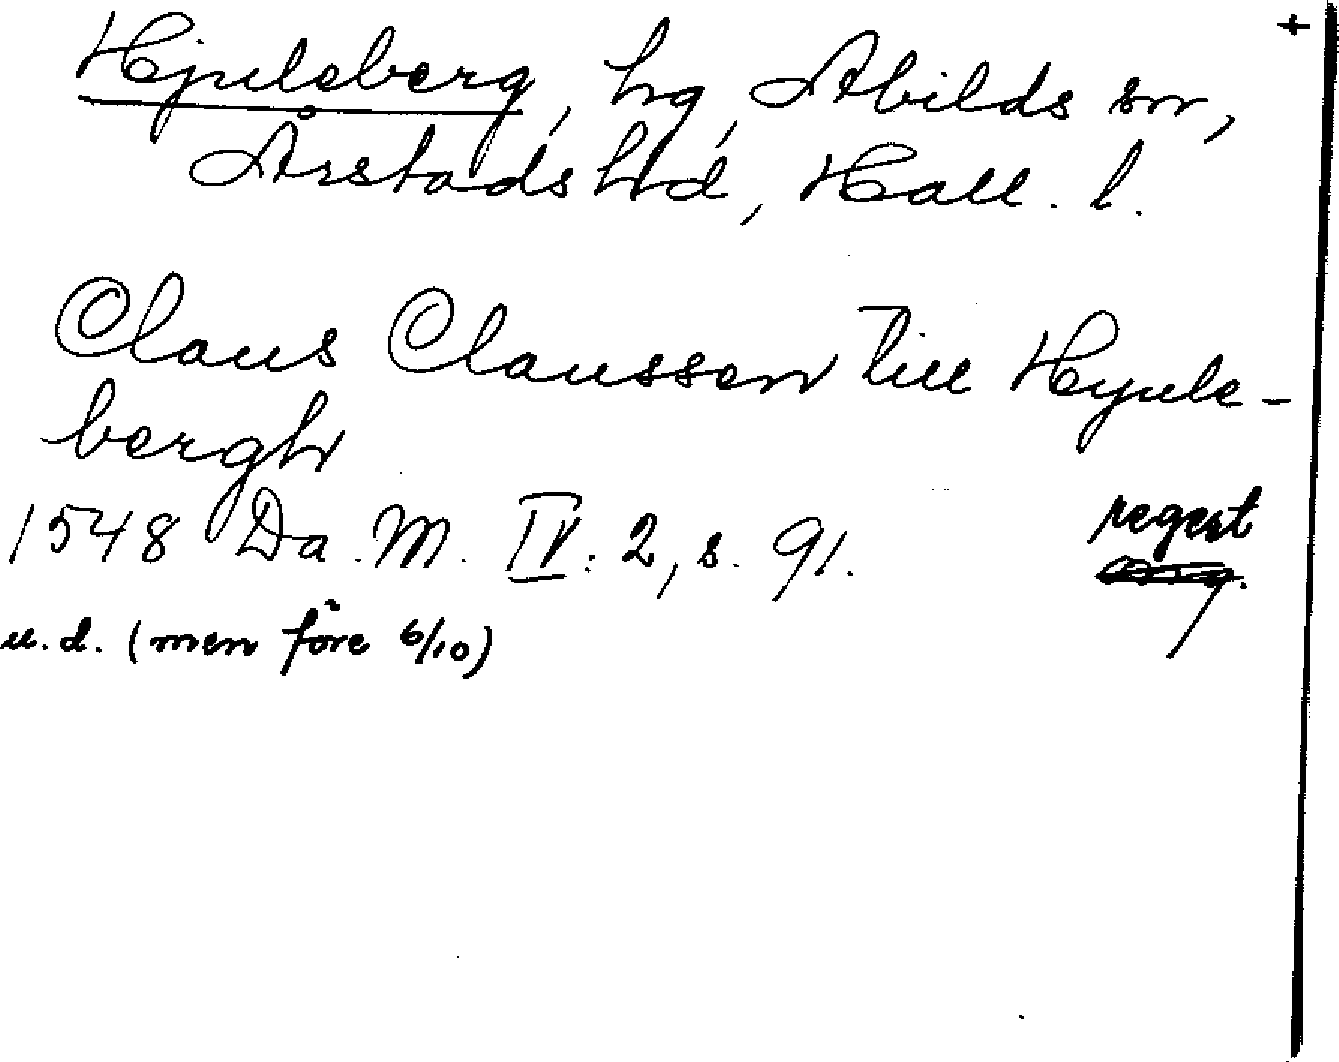 +
Hjuleberg, hg, Abilds sn,
Årstads hd, Hall. l.
Claus Claussen till Hyule-
bergh
1548 Da. M. IV: 2, s. 91. regest
u.d. (men före 6/10)